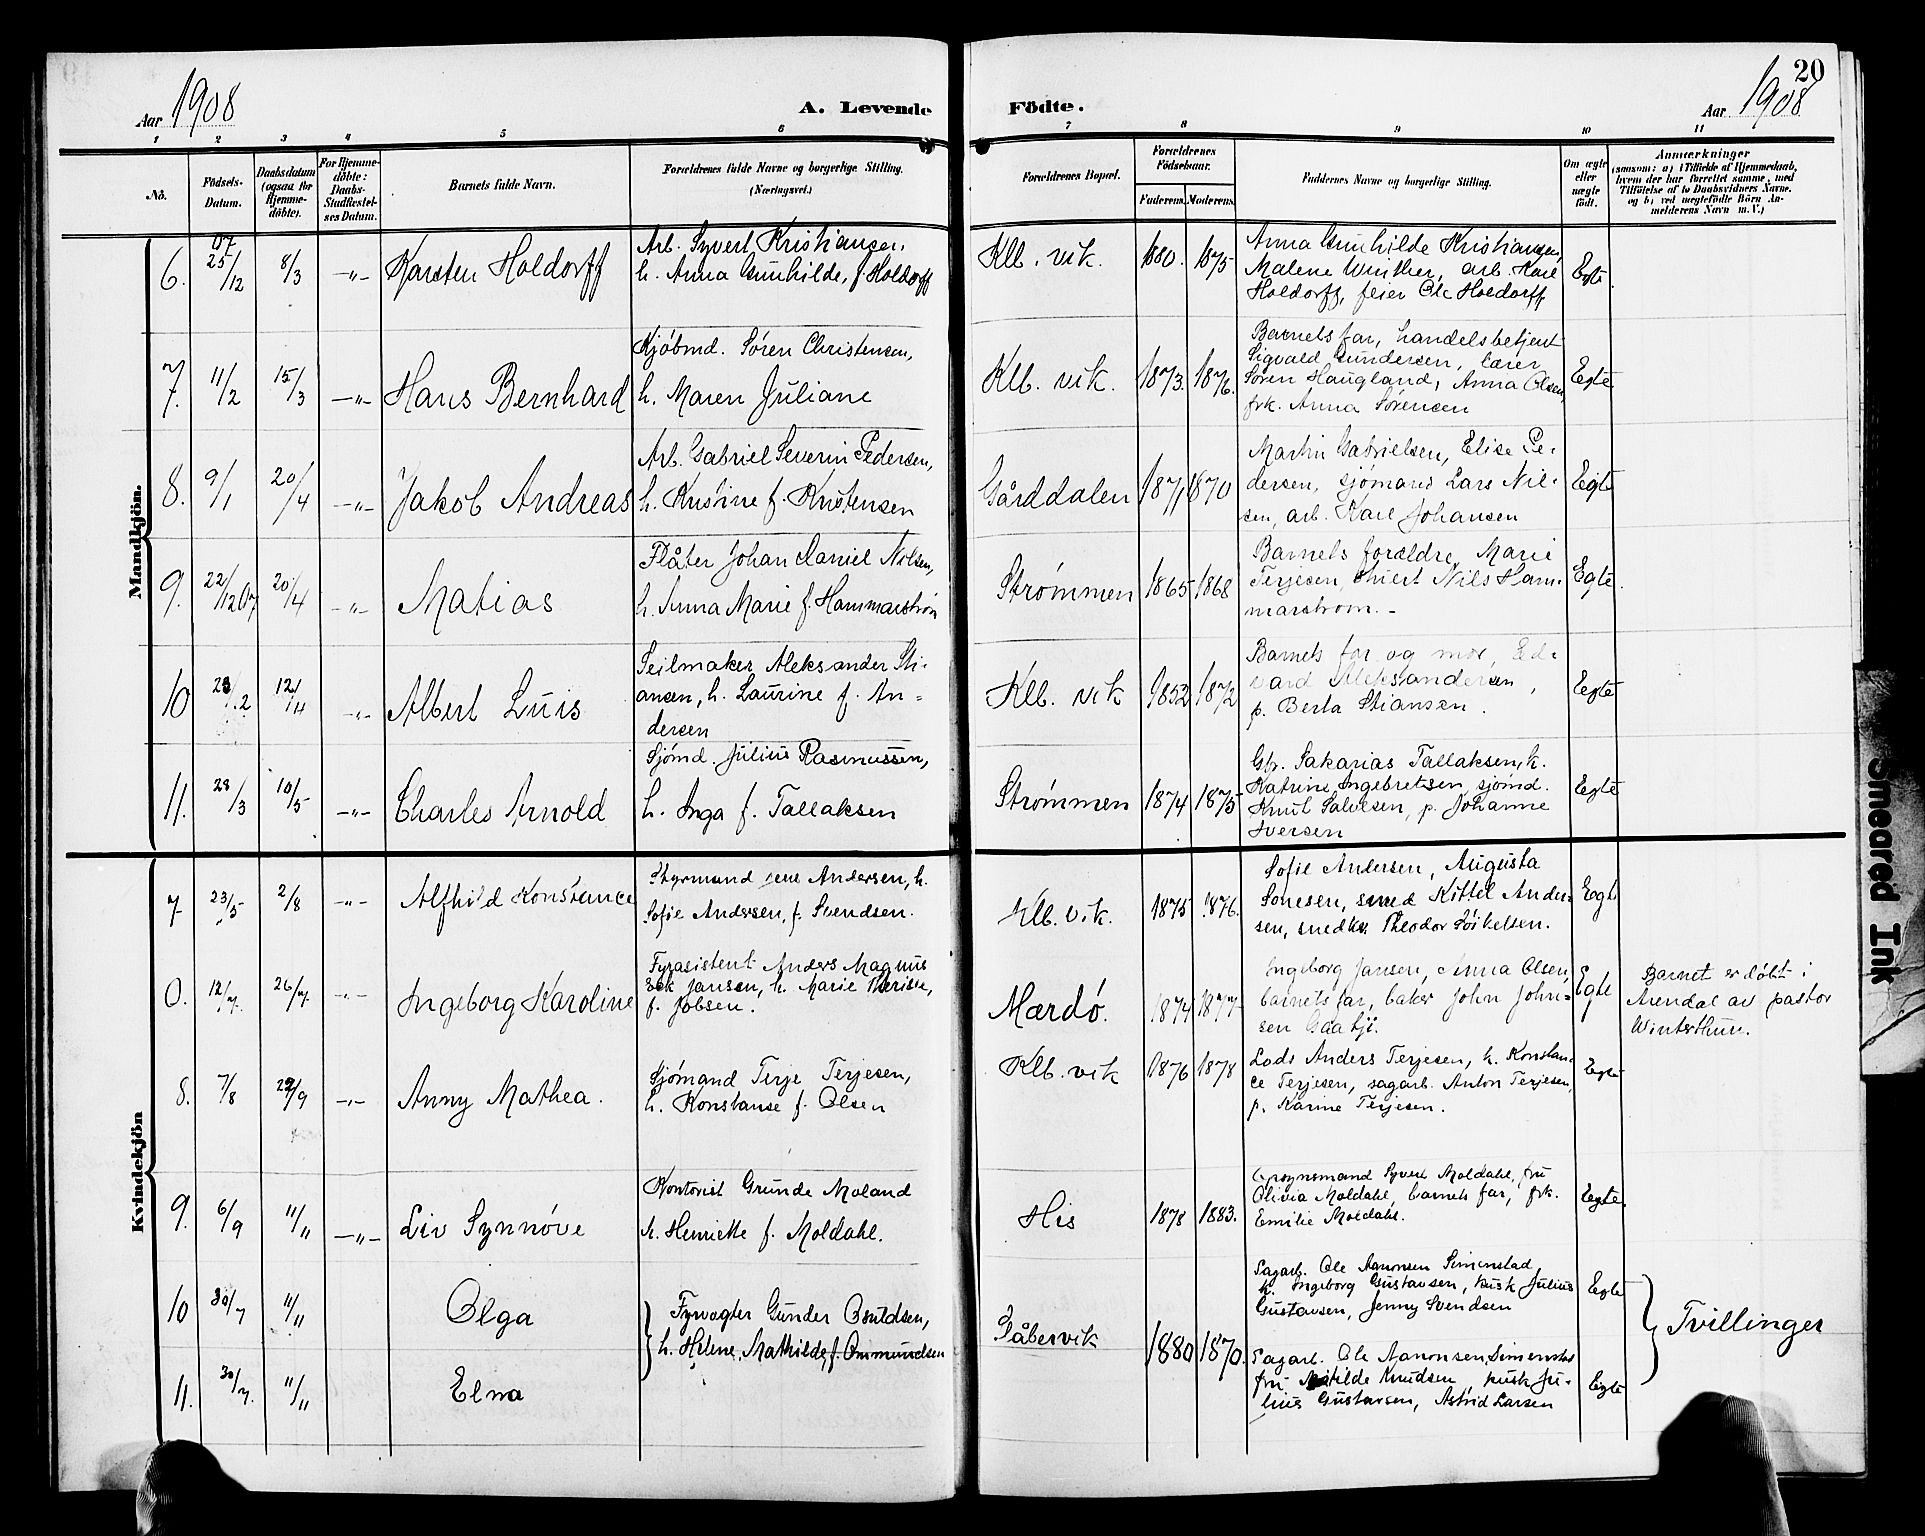 Aar 1908
A. Levende
Födte.
20
Aar 1908
1 2 3 4 5 6 7 8 9 10 11
Nö.
Födsels-Datum.
Daabsdatum (ogsaa for Hjemme-döbte).
For Hjemme-döbte: Daabs-Stadfæstel-ses Datum.
Barnets fulde Navn.
Forældrenes fulde Navne og borgerlige Stilling. (Næringsvei.)
Forældrenes Bopæl.
Forældrenes Födselsaar.
Faderens. Moderens.
Faddernes Navne og borgerlige Stilling.
Om ægte eller uægte födt.
Anmærkninger
(saasom: a) i Tilfælde af Hjemmedaab, hvem der har forrettet samme, med Tilföielse af to Daabsvidners Navne, og b) ved uægtefödte Börn An-melderens Navn m. V.)
Mandkjön.
6. 07 25/12 8/3 -"- Karsten Holdorff
Arb. Syvert Kristiansen,
h. Anna Gunhilde, f. Holdorff
Klb. vik. 1880. 1875
Anna Gunhilde Kristiansen,
Malene Winther, arb. Karl
Holdorff, feier Ole Holdorff
Egte
7. 11/2 15/3 -"- Hans Bernhard
Kjøbmd. Søren Christensen,
h. Maren Juliane
Klb. vik. 1873. 1876.
Barnets far, handelsbetjent
Sigvald Gundersen, lærer
Søren Haugland, Anna Olsen,
frk. Anna Sørensen
Egte
8. 9/1 20/4 -"- Jakob Andreas
Arb. Gabriel Severin Pedersen,
h. Kristine f. Knutensen
Gårddalen 1871 1870
Martin Gabrielsen, Elise Pe-
dersen, sjømand Lars Nil-
sen, arb. Karl Johansen
Egte
9. 22/12 07 20/4 -"- Matias
Flåter Johan Daniel Nilsen,
h. Anna Marie f. Hammarstrøm
Strømmen 1865 1868
Barnets forældre, Marie
Terjesen, Nils Ham-
marstrøm.-
Egte.
10 12/4 -"- Albert Luis
Seilmaker Aleksander Sti-
ansen, h. Laurine f. An-
dersen
Klb. vik 1852 1872
Barnets far og mor, Ed-
vard Aleksandersen,
p. Berta Stiansen.
Egte
11. 28/3 10/5 -"- Charles Arnold
Sjømd. Julius Rasmussen,
h. Inga f. Tallaksen
Strømmen 1874 1875
Gbr. Sakarias Tallaksen, k.
Katrine Ingebretsen, sjømd.
Knut Salvesen, p. Johanne
Iversen
Egte
Kvindekjön
7 23/5 2/8 -"- Alfhild Konstance
Styrmand Jens Andersen, h.
Sofie Andersen, f. Svendsen.
Klb. vik. 1875 1876.
Sofie Andersen, Augusta
Sonesen, smed Kittel Ander-
sen, snedker Theodor
Egte
0. 12/7. 26/7 -"- Ingeborg Karoline
Fyrasistent Anders Magnus
Eek Jansen, h. Marie Therese,
f. Jobsen.
Mærdø. 1874 1877
Ingeborg Jansen, Anna Olsen,
barnets far, baker John John-
sen
Egte
Barnet er døbt i
Arendal av pastor
Winterthun.
8. 7/8 29/9 -"- Anny Mathea.
Sjømand Terje Terjesen,
h. Konstanse f. Olsen
Klb. vik 1876 1878
Lods Anders Terjesen, h. Konstan-
ce Terjesen, sagarb. Anton Terjesen,
p. Karine Terjesen.
Egte
9. 6/9 11/11 -"- Liv Synnøve
Kontorist Grunde Moland
h. Henriette f. Moldahl.
His 1878 1883.
Opsynsmand Syvert Moldahl, fru
Olivia Moldahl, barnets far, frk.
Emilie Moldahl.
Egte.
10 30/7 11/11 Olga
Fyrvogter Gunder Osuldsen,
h. Helene Mathilde, f. Ommundsen
Såbervik 1880 1870.
Sagarb. Ole Aanonsen Simonstad,
h. Ingeborg Gustavsen, kusk Julius
Gustavsen, Jenny Svendsen
Egte
Tvillinger
11. 30/7. 11/11 Elna
Sagarb. Ole Aanonsen Simonstad
fru Matilde Knudsen, kusk Ju-
lius Gustavsen, Astrid Larsen
Egte
Smeared Ink